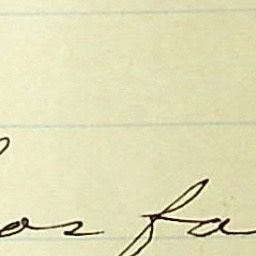 os fa